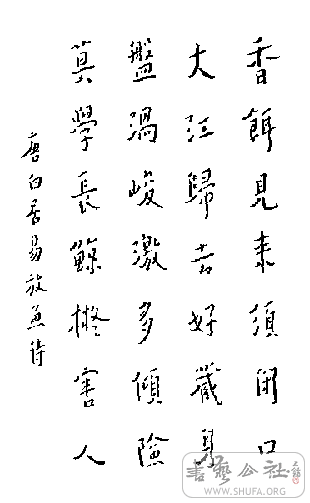 香餌見來須閉口
大江歸去好藏身
盤渦峻激多傾險
莫學長鯨擬害人
唐白居易放魚詩
書藝公社
WWW.SHUFA.ORG